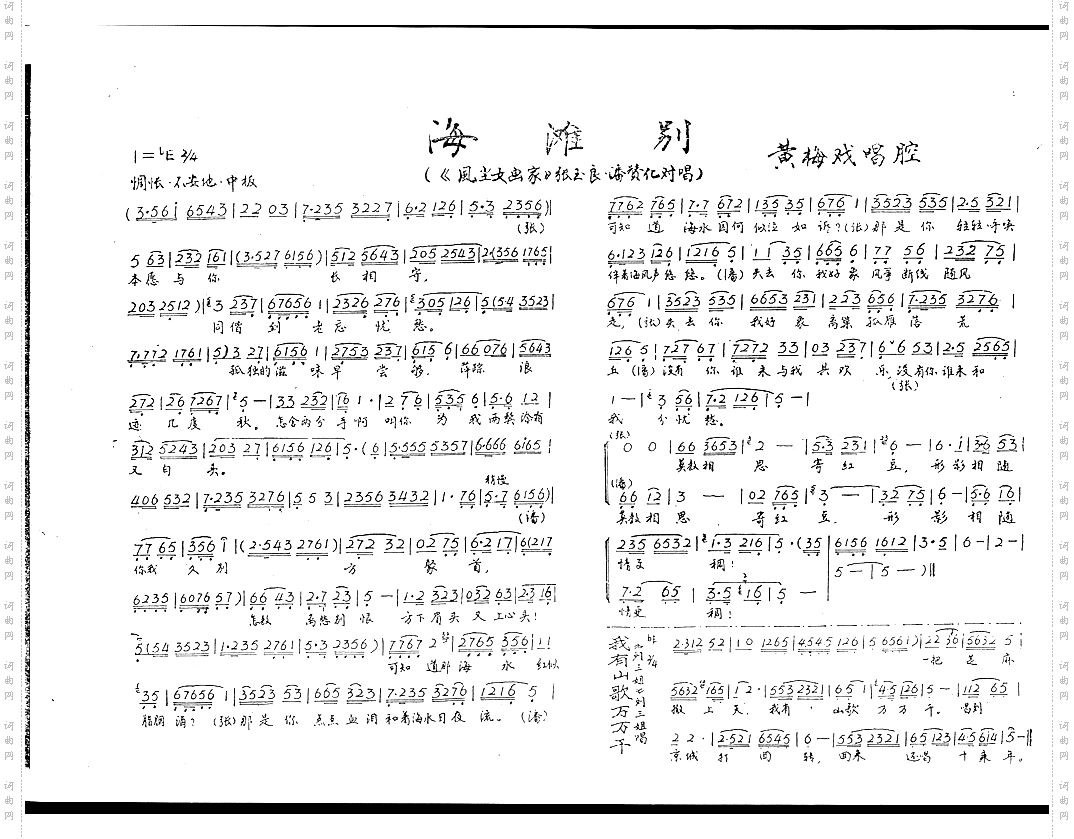 海 滩 别
黄梅戏唱腔
1=♭E 2/4
(《风尘女画家》张玉良·潘赞化对唱)
惆怅·不安地·中板
(3·56i 6543|22 03|7·235 3227|6·2 126|5·3 2356)|
(张)
5 63|232 161|(3·527 6156)|512 5643|205 2543|2(356 1765|
本愿与你 长相守,
203 2512)|3 237|67656 1|2326 276|305 126|5(54 3523|
同偕到老忘忧愁。
7·772 1761|5)3 27|6156 1|2753 237|615 6|66 076|5643
孤独的滋味早尝够,萍踪浪
272|26 7267|5 —|33 232|16 1·|2 76|535 6|5·6 12|
迹几度秋。怎舍两分手啊叫你为我两鬓添有
312 5243|203 27|6156 126|5·(6|5·555 5357|6·666 6165|
又白头。
稍慢
406 532|7·235 3276|5 5 3|2356 3432|1·76|5·7 6156)|
(潘)
77 65|356 1|(2·543 2761)|272 32|02 75|6·2 17|6(217
你我久别方聚首,
6235|6076 57)|66 43|2·7 23|5 —|1·2 323|032 63|2·3 16|
怎教离愁别恨方下眉头又上心头!
5(54 3523|1·235 2761|5·3 2356)|7767 2|2765 356|11
可知道那海水红似
35|67656 1|3523 53|665 323|7·235 3276|1216 5|
胭脂泪?(张)那是你点点血泪和着海水日夜流。(潘)
7762 765|7·7 672|135 35|676 1|3523 535|2·5 321|
可知道海水因何似泣如诉?(张)那是你轻轻呼唤
6·123 126|1216 5|11 35|665 6|77 56|232 75|
伴着海风声悠悠。(潘)失去你我好象风筝断线随风
676 1|3523 535|6653 231|223 656|7·235 3276|
走,(张)失去你我好象离群孤雁落荒
126 5|727 67|7272 33|03 237|6 6 53|2·5 2565|
丘(潘)没有你谁来与我共欢乐,没有你谁来和
(张)
1 —|3 56|7·2 126|5 —|
我分忧愁。
(张)
0 0|66 3653|2 —|5·3 231|6 —|6·i|36 53|
莫教相思寄红豆,形影相随
(潘)
66 12|3 —|02 765|3 —|32 75|6 —|5·6 16|
莫教相思寄红豆,形影相随
235 6532|1·3 216|5·(35|6156 1612|3·5|6 —|2 —|
情更稠!
5 —|5 —)‖
7·2 65|3·5 16|5 —
情更稠!
我有山歌万万千
2·312 52|10 1265|4545 126|5 6561)|22 36|5632 5
一把芝麻
5632 165|12·|553 2321|65 1|45 126|5 —|112 65|
撒上天,我有山歌万万千。唱到
22·|2·521 6545|6 —|553 2321|65 123|4·5 614|5 —‖
京城打回转,回来还唱十来年。